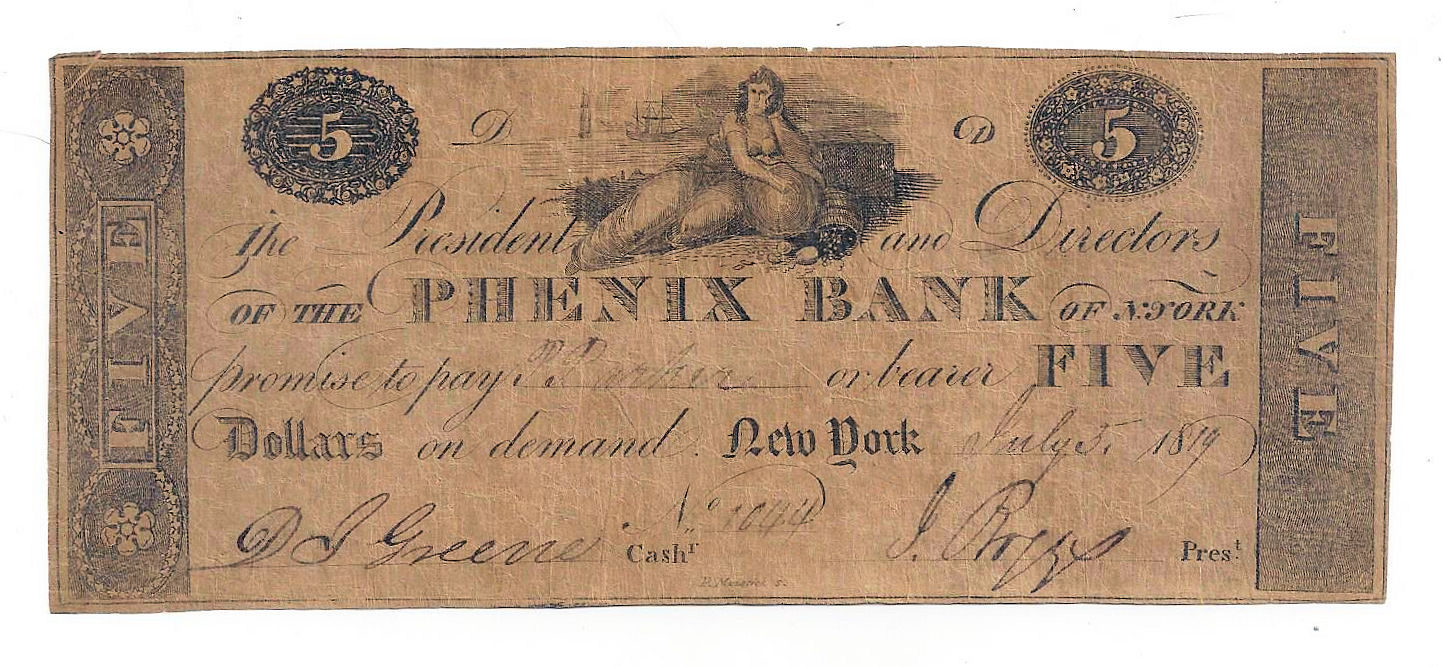 5 D D 5
The President and Directors
OF THE PHENIX BANK OF N.YORK
promise to pay or bearer FIVE
Dollars on demand. New York July 5. 1819
No. 1044
D J Greene Cashr J. Presᵗ
FIVE
FIVE